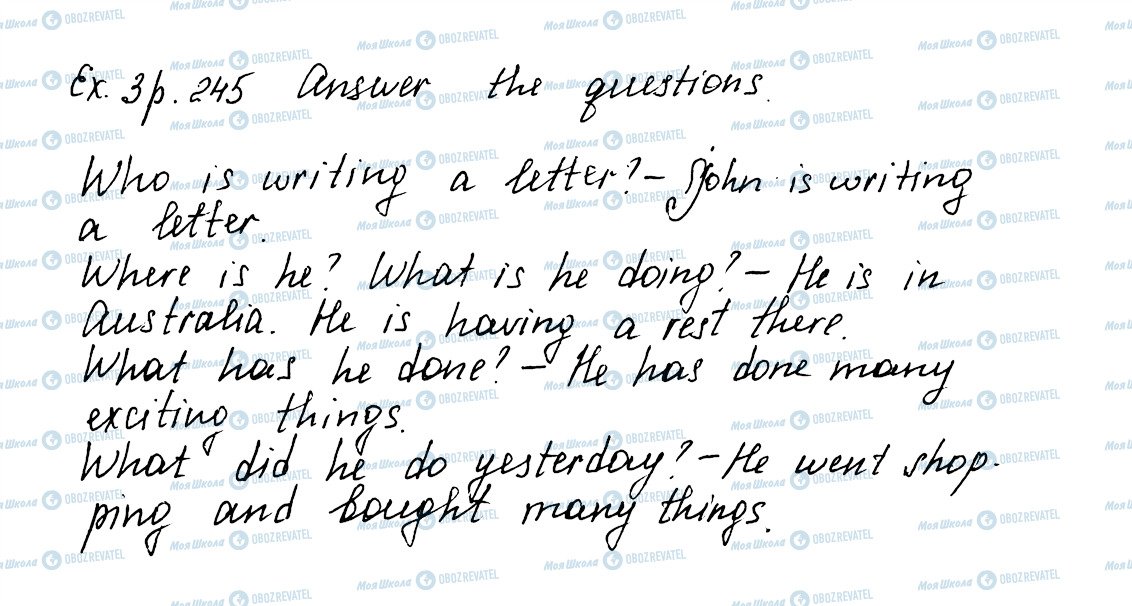 Ex. 3 p. 245 Answer the questions.
Who is writing a letter? – John is writing
a letter.
Where is he? What is he doing? – He is in
Australia. He is having a rest there.
What has he done? – He has done many
exciting things.
What did he do yesterday? – He went shop-
ping and bought many things.